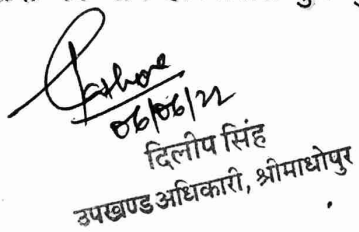 06/06/22
दिलीप सिंह
उपखण्ड अधिकारी, श्रीमाधोपुर